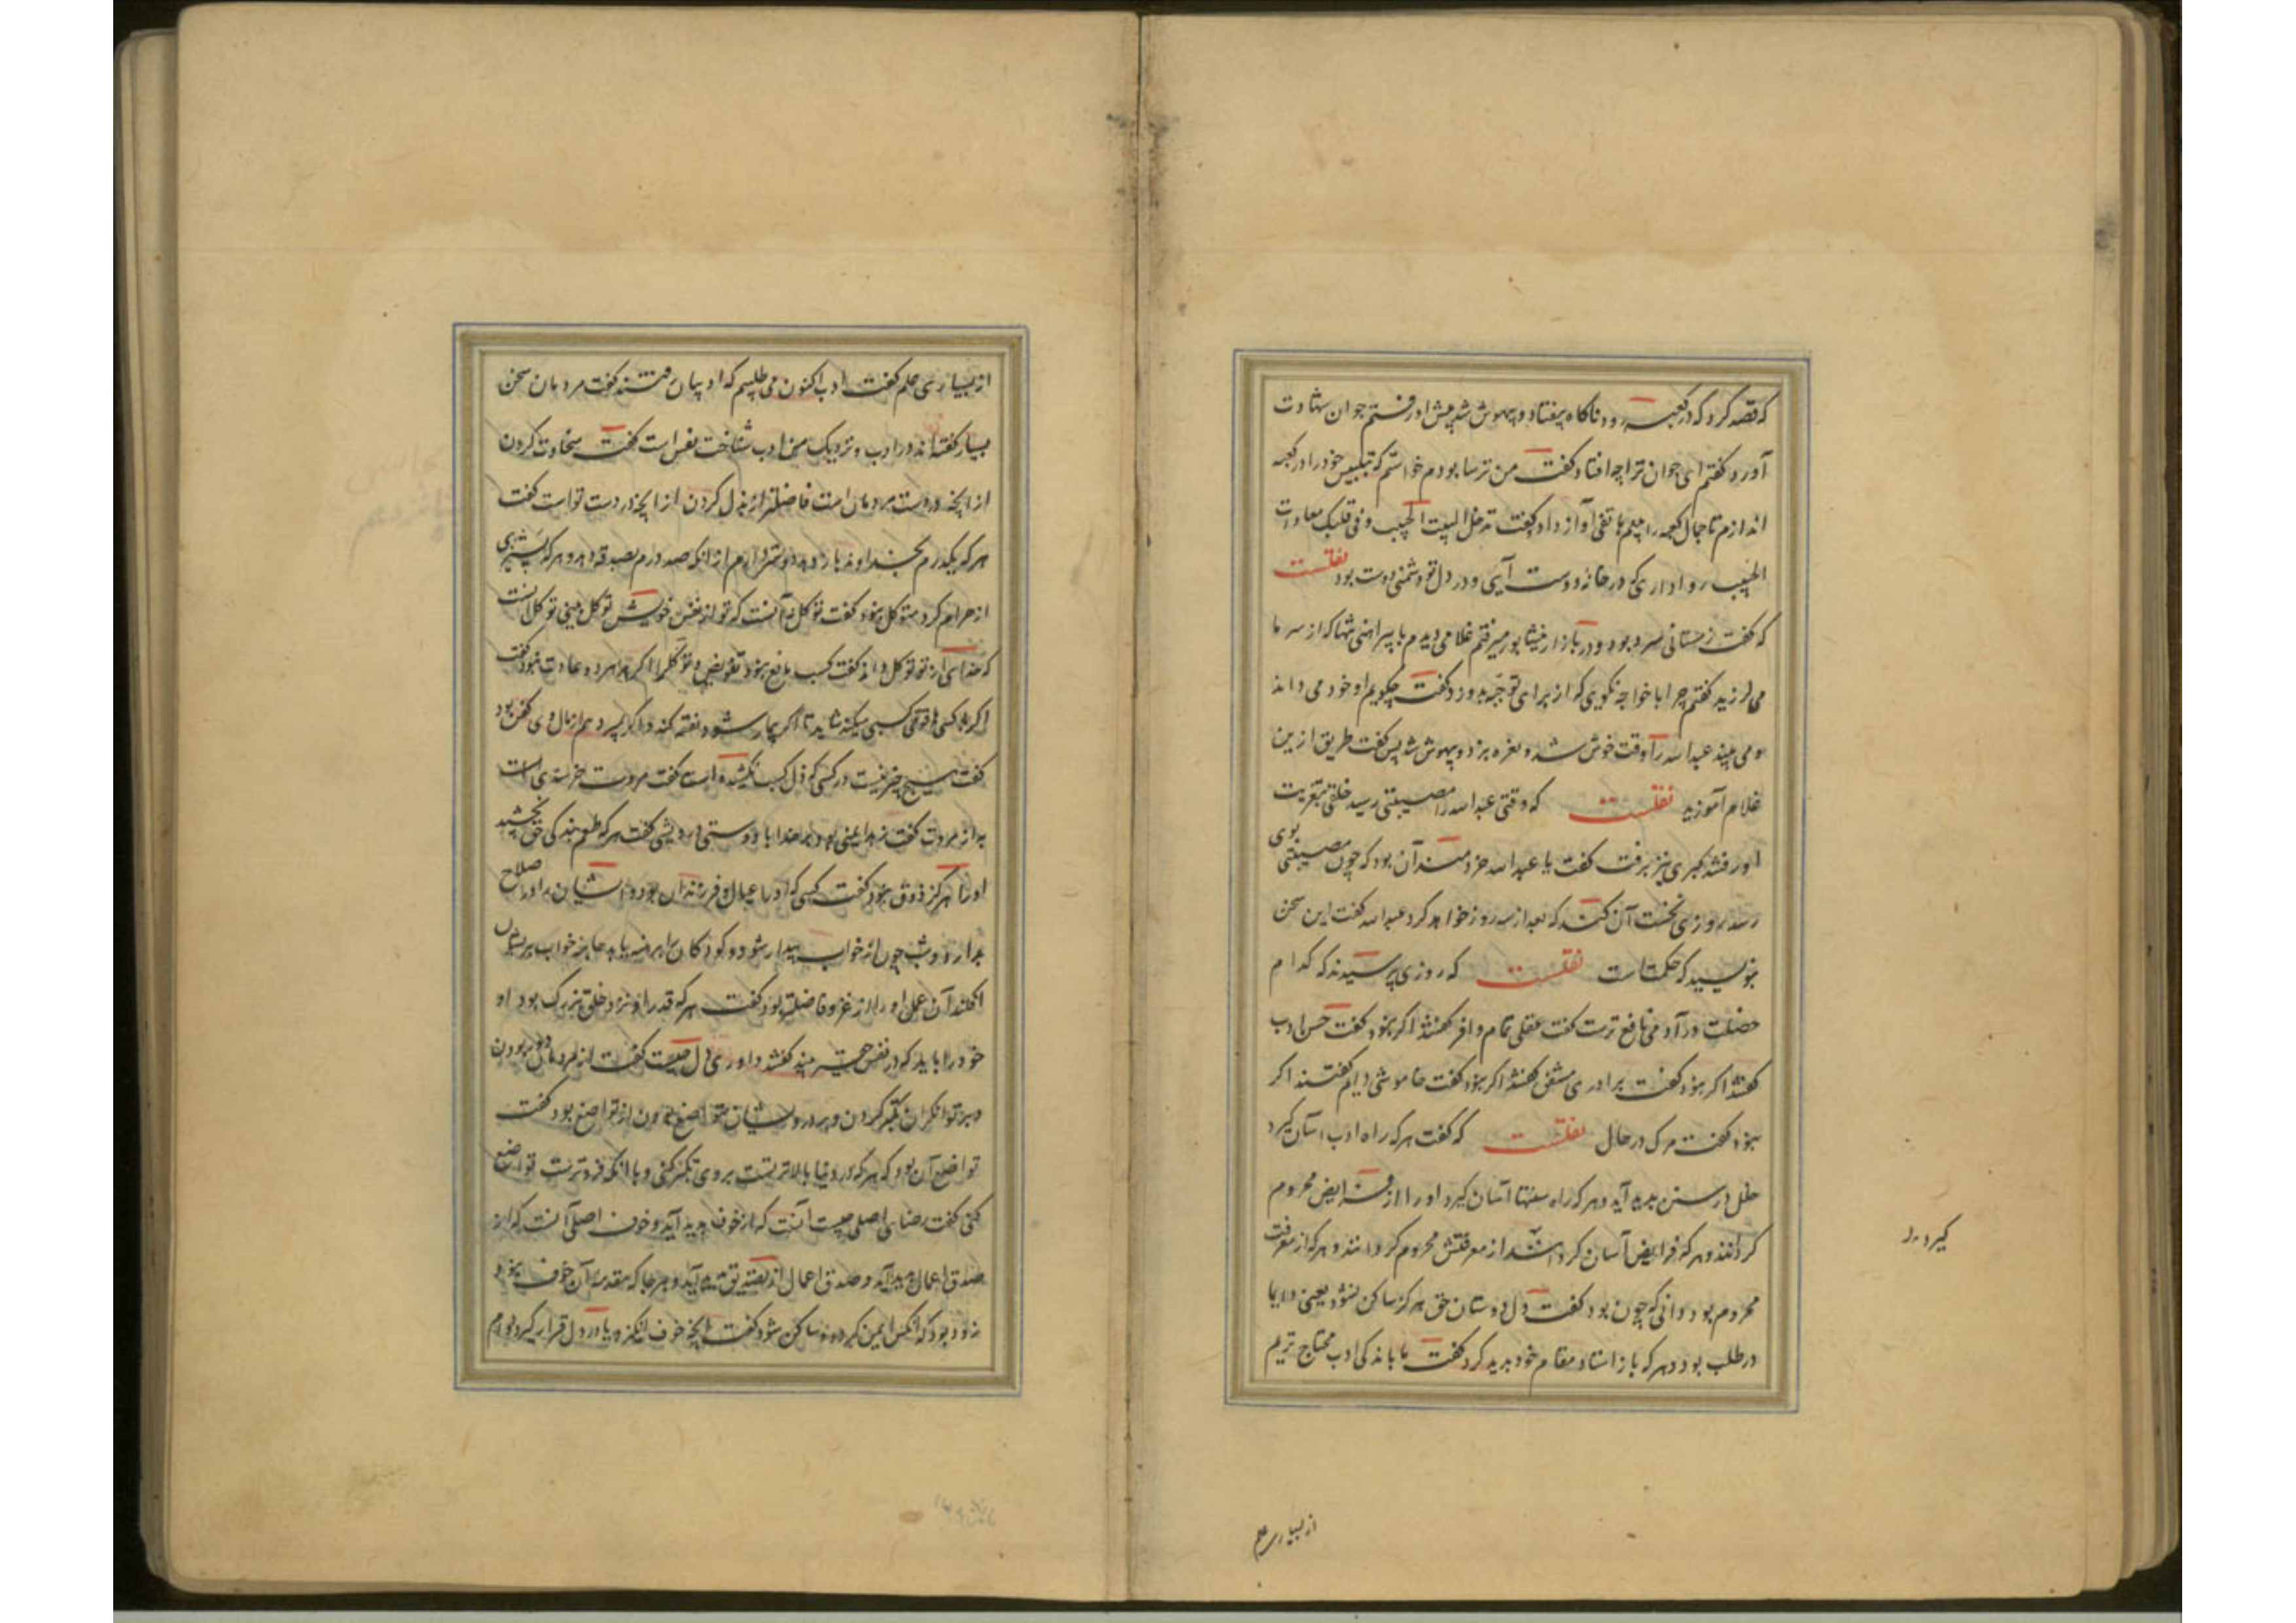 که قصد کرد که در کعبه رود ناگاه بیفتاد و بیهوش شد پیش او رفتم جوان شهادت
آورد گفتم ای جوان ترا چه افتاد گفت من ترسا بودم خواستم که بتلبیس خود را در کعبه
اندازم تا جمال کعبه را بینم هاتفی آواز داد و گفت تدخل البیت الحبیب و فی قلبک معادات
الحبیب روا داری که در خانه دوست آیی و در دل تو دشمنی دوست بود نقلست
که گفت زمستانی سرد بود و در بازار نیشابور میرفتم غلامی دیدم با پیراهنی تنها که از سرما
می لرزید گفتم چرا با خواجه نگویی که از برای تو جبه بدوزد گفت چگویم او خود می داند
و می بیند عبدالله را وقت خوش شد و نعره بزد و بیهوش شد پس گفت طریق ازین
غلام آموزید نقلست که وقتی عبدالله را مصیبتی رسید خلقی بتعزیت
او رفتند گبری نیز برفت گفت یا عبدالله خردمند آن بود که چون مصیبتی بوی
رسد روزی نخست آن کند که بعد از سه روز خواهد کرد عبدالله گفت این سخن
بنویسید که حکمت است نقلست که روزی پرسیدند که کدام
خصلت در آدمی نافع ترست گفت عقلی تمام وافر گفتند اگر نبود گفت حسن ادب
گفتند اگر نبود گفت برادری مشفق گفتند اگر نبود گفت خاموشی دایم گفتند اگر
نبود گفت مرگ در حال نقلست که گفت هر که راه ادب آسان گیرد
خلل در سنن پدید آید و هر که راه سنتها آسان گیرد او را از فرایض محروم
گردانند و هر که فرایض آسان گرداند از معرفتش محروم گردانند و هر که از معرفت
محروم بود دانی که چون بود گفت دل دوستان حق هرگز ساکن نشود یعنی دایما
در طلب بود و هر که باز استاد مقام خود پدید کرد گفت ما باندکی ادب محتاج تریم
گیرد
از بسیاری علم
از بسیاری علم گفت ادب اکنون می طلبیم که ادبیان رفتند گفت مردمان سخن
بسیار گفته اند در ادب و نزدیک من ادب شناخت نفس است گفت سخاوت کردن
از آنچه در دست مردمان است فاضلتر از بذل کردن از آنچه در دست تو است گفت
هر که یکدرم بخداوند باز دهد دوستر دارم از آنکه صد درم بصدقه دهد و هر که پشیزی
از حرام گرد متوکل نبود گفت توکل نه آنست که تو از نفس خویش توکل بینی توکل آنست
که خدای از تو توکل داند گفت کسب مانع نبود تفویض و توکل را اگر هر دو عادت نبود گفت
اگر با کسی قوتی کسبی میکند شاید تا اگر بیمار شود نفقه کند و اگر بمیرد هم از مال وی کفن بود
گفت هیچ چیز نیست در کسی که ذل کسب نکشیده است گفت مروت خرسندی است
به از مروت گفت زهد ایمنی بود بر خدا با دوستی درویشی گفت هر که طعم بندگی حق نچشید
او را هرگز ذوق نبود گفت کسی که او را عیال و فرزندان بود و ایشان را در صلاح
بدارد و شب چون از خواب بیدار شود و کودکان را برهنه یابد جامه خواب بریشان
افکند آن عمل او را از غزو فاضلتر بود گفت هر که قدر او نزد خلق بزرگ بود او
خود را باید که در نفس حقیر بیند گفتند داوری دل چیست گفت از مردمان دور بودن
و بر توانگران تکبر کردن و بر درویشان متواضع بودن از تواضع بود گفت
تواضع آن بود که هر که در دنیا بالاتر تست بر وی تکبر کنی و با آنکه فروترست تواضع
کنی گفت رضای اصلی چیست آنست که از خوف پدید آید و خوف اصلی آنست که از
صدق اعمال پدید آید و صدق اعمال از تصدیق پدید آید و هر جا که مقدمه آن خوف نبود
زود بود که آنکس ایمن گردد و ساکن شود گفت آنچه خوف انگیزد یا در دل قرار گیرد دوام